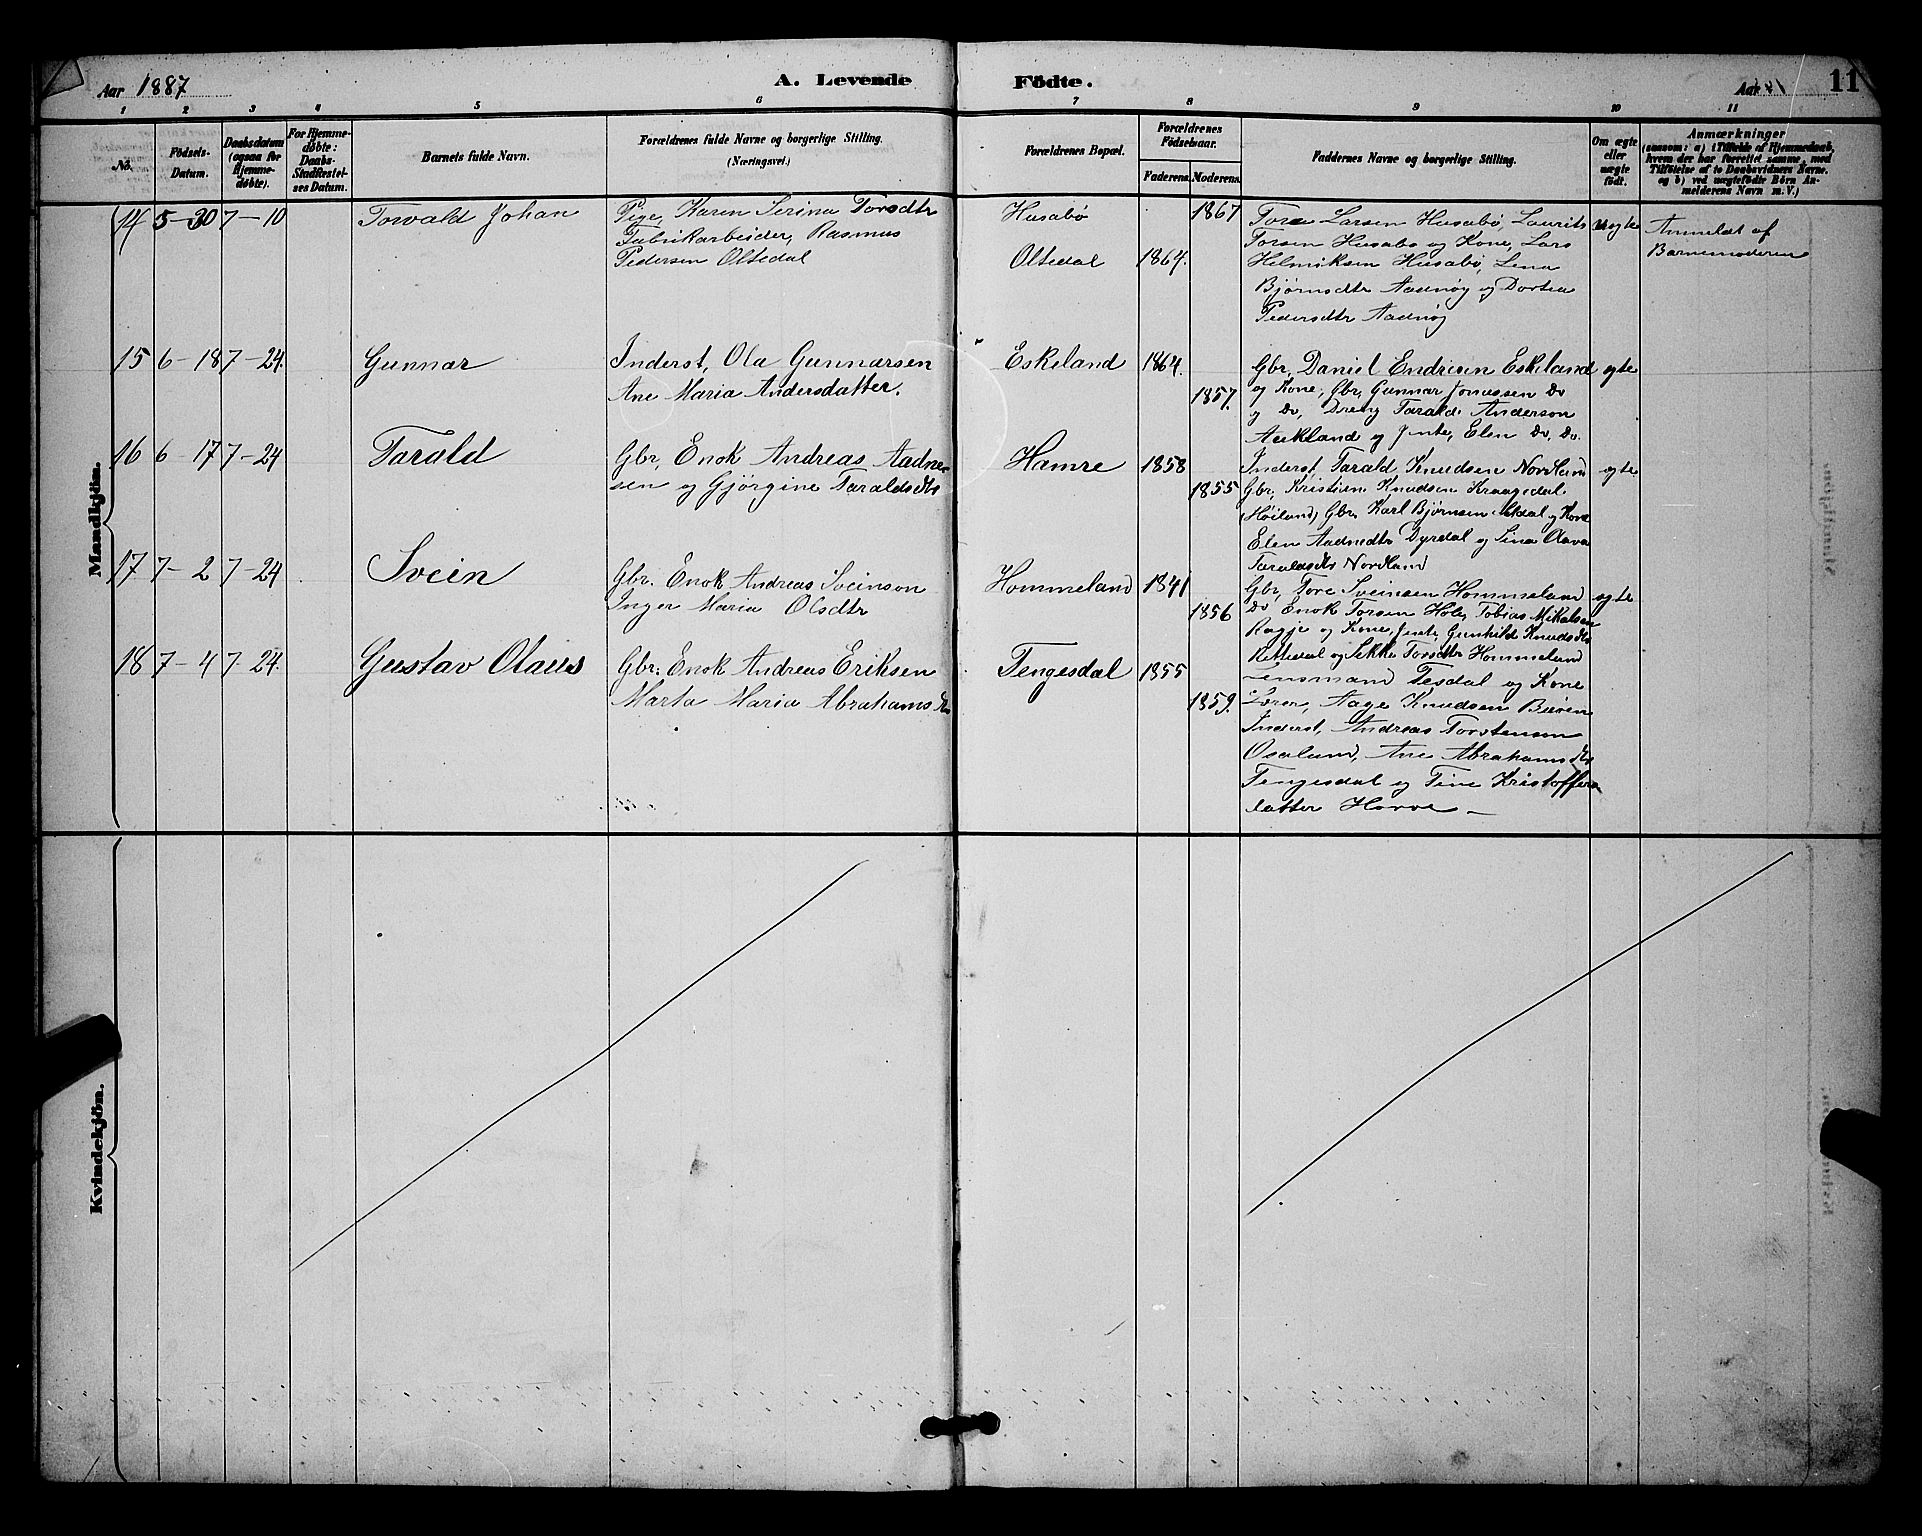 Aar 1887 A. Levende Födte. Aar 11
1 2 3 4 5 6 7 8 9 10 11
No. Födsels-Datum. Daabsdatum (ogsaa for Hjemme-døbte). For Hjemme-døbte: Daabs-Stadfæstel-ses Datum. Barnets fulde Navn. Forældrenes fulde Navne og borgerlige Stilling. (Næringsvei.) Forældrenes Bopæl. Forældrenes Födselsaar. Faderens. Moderens. Faddernes Navne og borgerlige Stilling. Om ægte eller uægte födt. Anmærkninger (saasom: a) i Tilfælde af Hjemmedaab, hvem der har forrettet samme, med Tilföielse af to Daabsvidners Navne. og b) ved uægtefödte Börn An-melderens Navn m. V.)
Mandkjön.
14 5-30 7-10 Torvald Johan Pige, Karen Serina Torsdtr Husabø 1867 Tore Larsen Husabø, Laurits uægte Anmeldt af
Fabrikarbeider, Rasmus Torsen Husabø og Kone, Lars Barnemoderen
Pedersen Oltedal Oltedal 1864. Helmiksen Husabø, Lena
Bjørnsdtr Aadnøy og Dortea
Pedersdtr Aadnøy
15 6-18 7-24. Gunnar Inderst, Ola Gunnarsen Eskeland 1864. Gbr, Daniel Endresen Eskeland egte
Ane Maria Andersdatter. 1857. og Kone, Gbr, Gunnar Jonassen Do
og Do, Dreng Tarald Anderson
Aukland og Jente, Elen Do, Do.
16 6-17 7-24 Tarald Gbr, Enok Andreas Aadne- Hamre 1858 Inderst, Tarald Knudsen Nordland egte
sen og Gjørgine Taraldsdtr 1855 Gbr, Kristian Knudsen Kraagedal
(Høiland) Gbr, Karl Bjørnsen Sekdal og Kone
Elen Aadnedtr Dyrdal og Sina Olava
Taraldsdtr Nordland
17 7-2 7-24 Svein Gbr. Enok Andreas Sveinson Hommeland 1841 Gbr, Tore Sveinsen Hommeland egte
Inger Maria Olsdtr 1856 Do Enok Torsen Hole, Tobias Mikalsen
Ragje og Kone, Jente, Gunhild Knudsdtr
Rettedal og Sekke Torsdtr Hommeland
18 7-4 7-24. Gustav Olaus Gbr. Enok Andreas Eriksen Tengesdal 1855 Lensmand Tesdal og Kone
Marta Maria Abrahamsdtr 1859. Lærer, Aage Knudsen Bueien
Inderst, Andreas Torstensen
Osaland, Ane Abrahamsdtr
Tengesdal og Tine Kristoffers
datter Horve
Kvindekjön.